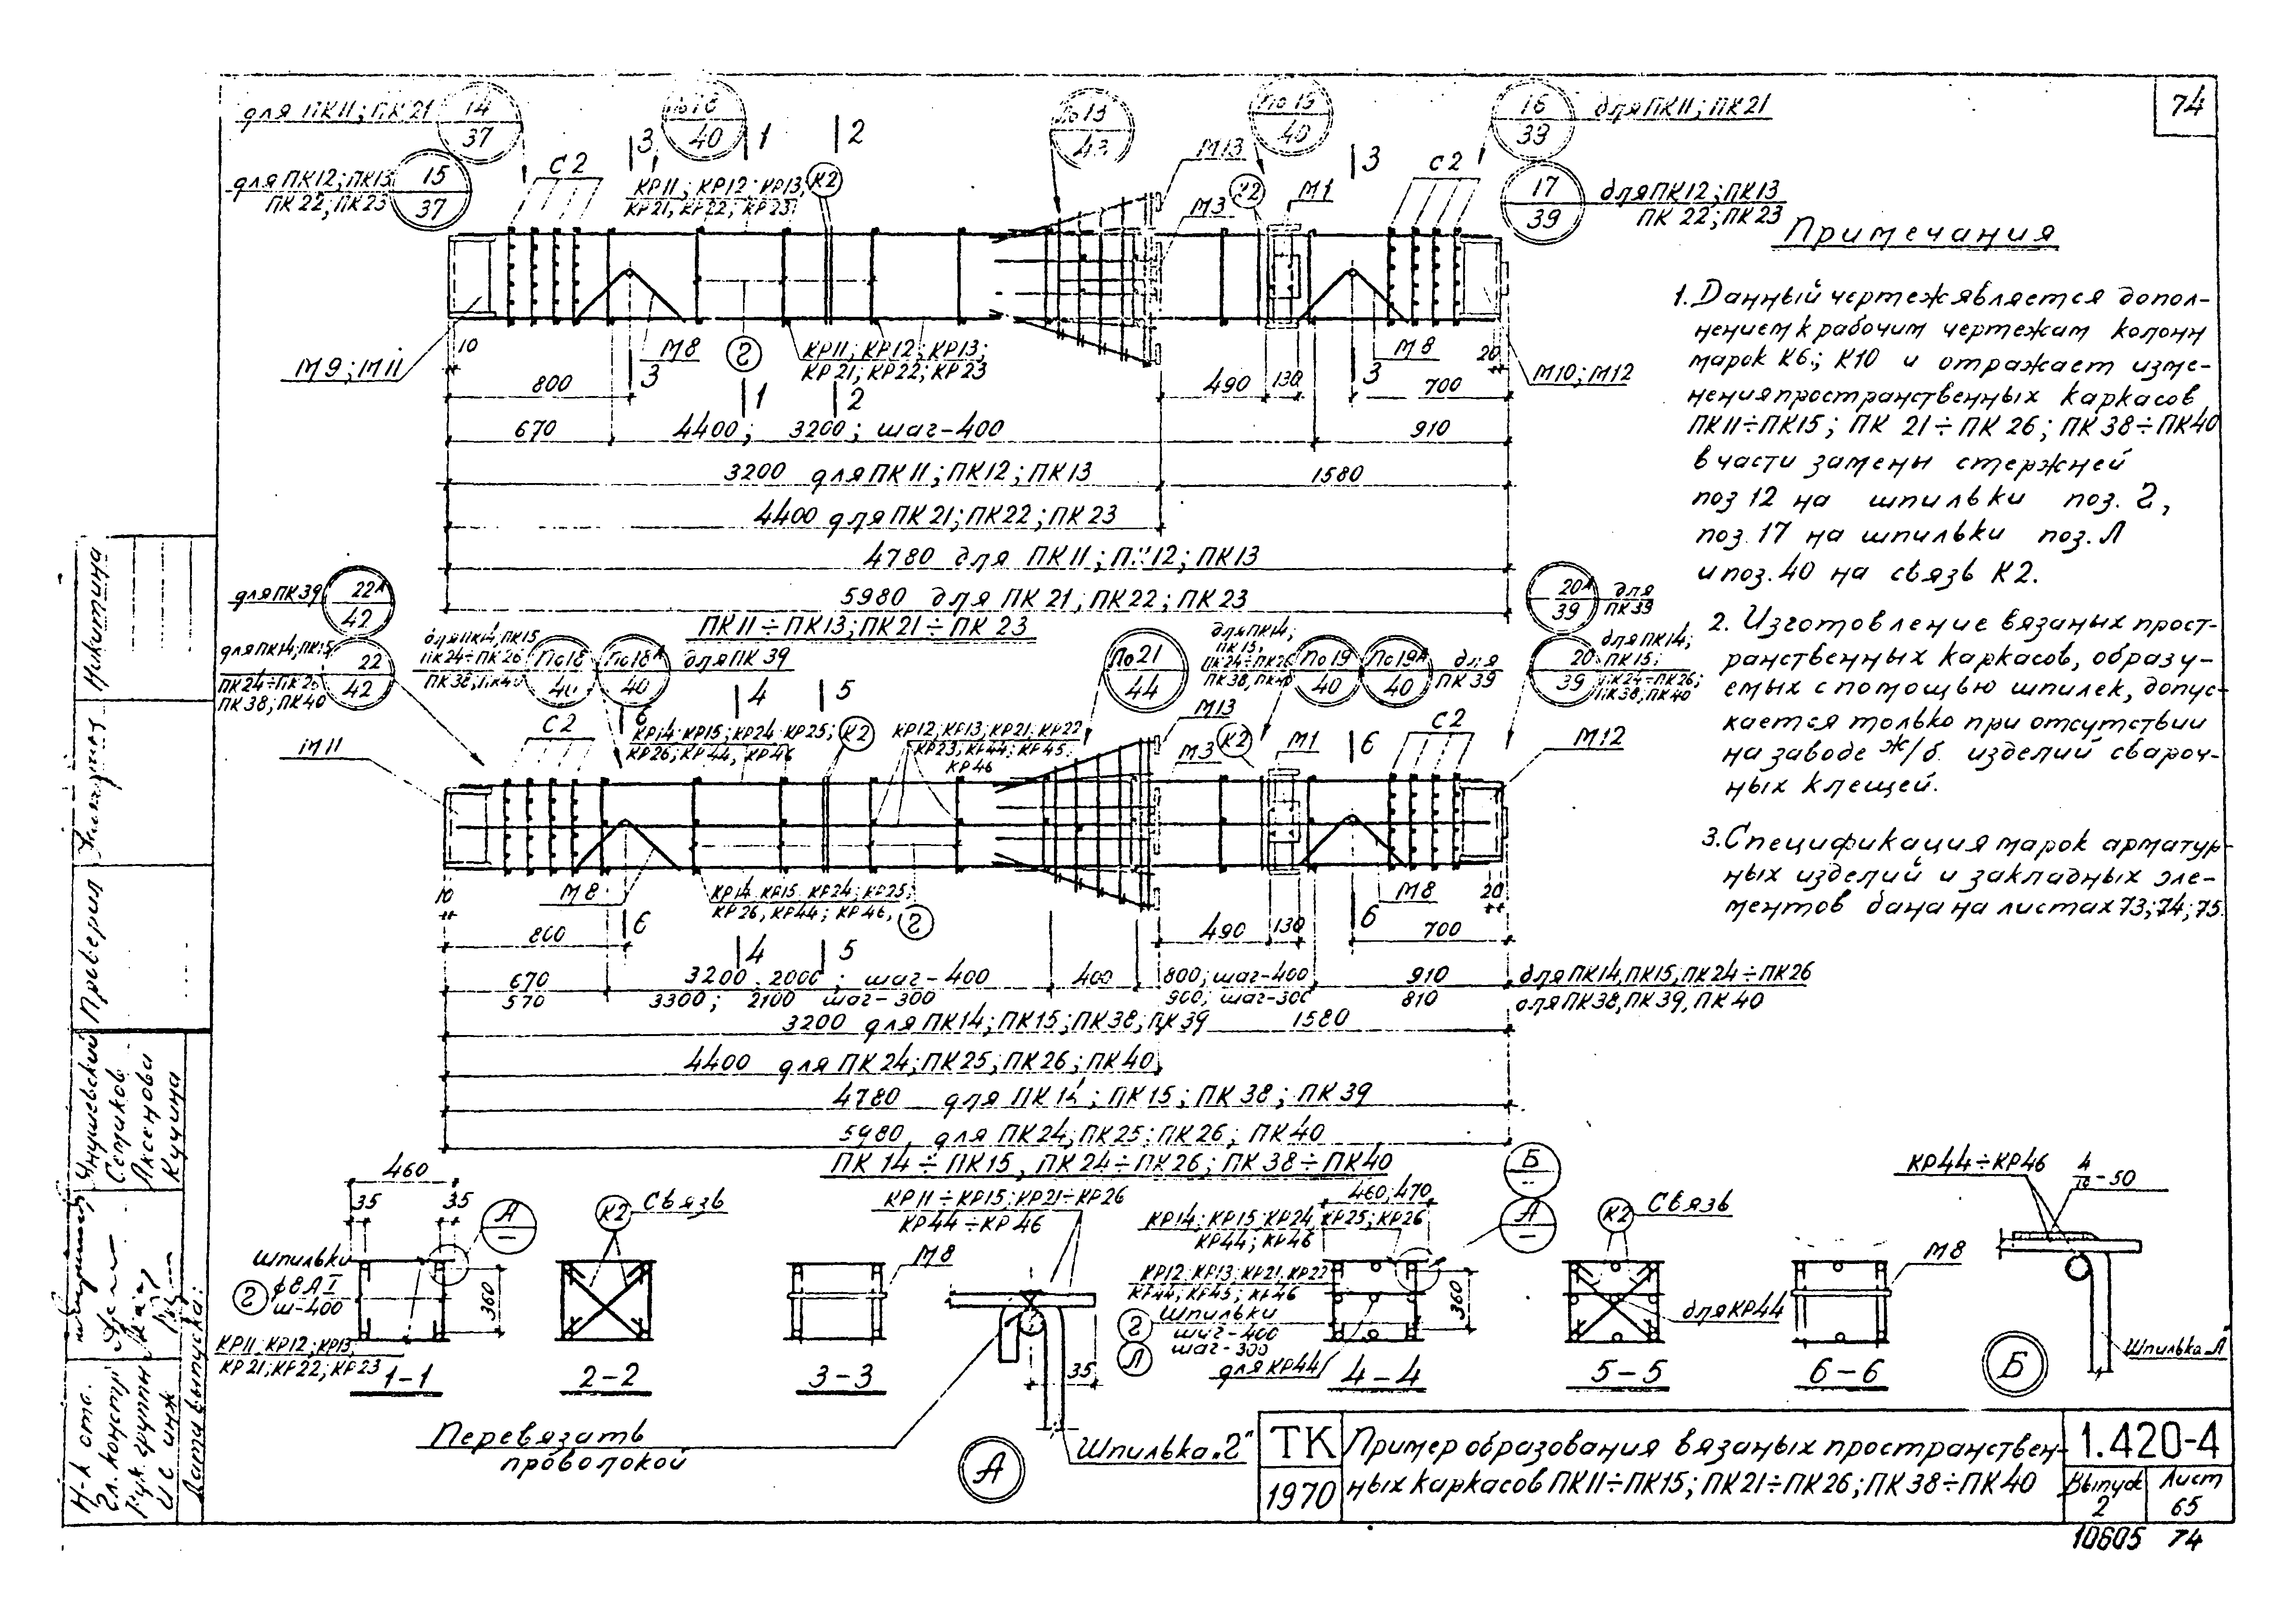 74
для ПК11; ПК21
14
37
40
1
2
По 13
43
По 15
40
16
39
для ПК11; ПК21
для ПК12; ПК13
ПК22; ПК23
15
37
С2
3
КР11; КР12; КР13;
КР21, КР22; КР23;
К2
М13
М3
К2
М1
3
С2
17
39
для ПК12; ПК13
ПК22; ПК23
Примечания
1. Данный чертеж является допол-
нением к рабочим чертежам колонн
марок К6; К10 и отражает изме-
нения пространственных каркасов
ПК11÷ПК15; ПК 21÷ПК 26; ПК 38÷ПК40
в части замены стержней
поз 12 на шпильки поз. Г,
поз. 17 на шпильки поз. Л
и поз. 40 на связь К2.
2. Изготовление вязаных прост-
ранственных каркасов, образу-
емых с помощью шпилек, допус-
кается только при отсутствии
на заводе ж/б изделий свароч-
ных клещей.
3. Спецификация марок арматур-
ных изделий и закладных эле-
ментов дана на листах 73; 74; 75.
М9; М11
10
М8
Г
КР11; КР12; КР13;
КР21; КР22; КР23
М8
20
М10; М12
800
3
1
2
490
130
3
700
670
4400; 3200; шаг-400
910
3200 для ПК11; ПК12; ПК13
1580
4400 для ПК21; ПК22; ПК23
4780 для ПК11; ПК12; ПК13
5980 для ПК21, ПК22; ПК23
ПК11÷ПК13; ПК21÷ПК23
для ПК39
22А
42
для ПК14; ПК15
ПК24÷ПК26
ПК38; ПК40
22
42
для ПК14, ПК15
ПК24÷ПК26
ПК38, ПК40
По 18
40
По 18А
40
для ПК 39
По 21
44
для ПК14;
ПК15;
ПК24÷ПК26
ПК38, ПК40
По 19
40
По 19А
40
для
ПК39
20А
39
для
ПК39
20
39
для ПК14;
ПК15;
ПК24÷ПК26;
ПК38, ПК40
М11
С2
6
4
5
КР14; КР15; КР24; КР25;
КР26, КР44, КР46
К2
КР12, КР13; КР21, КР22
КР23; КР44; КР45;
КР46
М13
М3
К2
М1
6
С2
М12
10
М8
КР14 КР15 КР24; КР25;
КР26, КР44; КР46,
Г
М8
20
800
6
4
5
490
130
6
700
670
3200 2000; шаг-400
400
800; шаг-400
910
для ПК14, ПК15, ПК24÷ПК26
570
3300; 2100 шаг-300
900; шаг-300
810
для ПК38, ПК39, ПК40
3200 для ПК14; ПК15; ПК38; ПК39
1580
4400 для ПК24; ПК25; ПК26; ПК40
4780 для ПК14; ПК15; ПК38; ПК39
5980 для ПК24; ПК25; ПК26; ПК40
ПК14÷ПК15, ПК24÷ПК26; ПК38÷ПК40
460
35
35
А
Шпильки
Г
ф8АI
ш-400
360
КР11; КР12; КР13;
КР21; КР22; КР23
1-1
К2
Связь
2-2
М8
3-3
КР11÷КР15; КР21÷КР26
КР44÷КР46
35
Перевязать
проволокой
А
Шпилька „Г"
460; 470
КР14; КР15; КР24, КР25; КР26
КР44; КР46
КР12; КР13; КР21, КР22
КР44, КР45; КР46
Г
Л
Шпильки
шаг-400
шаг-300
для КР44
360
4-4
Б
А
К2
Связь
для КР44
5-5
М8
6-6
КР44÷КР46
4
50
Шпилька „Л"
Б
ТК
1970
Пример образования вязаных пространствен-
ных каркасов ПК11÷ПК15; ПК21÷ПК26; ПК38÷ПК40
1.420-4
Выпуск
2
Лист
65
10605 74
Никитина
Проверил
Семиков
Аксенова
Кучина
Н-к отд.
Гл. констр
Рук. группы
Дата выпуска: